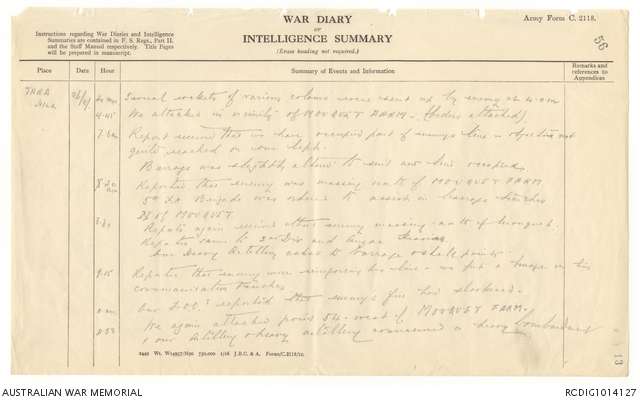 WAR DIARY
or
INTELLIGENCE SUMMARY
(Erase heading not required.)
Army Form C. 2118.
56
Instructions regarding War Diaries and Intelligence
Summaries are contained in F. S. Regs., Part II.
and the Staff Manual respectively. Title Pages
will be prepared in manuscript.
Place
Date
Hour
Summary of Events and Information
Remarks and
references to
Appendices
TARA
HILL
Several rockets of various colours were sent up by enemy at 4 am
4.45 We attacked in vicinity of MOUQUET FARM - (orders attached).
Report received that we have occupied part of enemys line & objective not
quite reached on our left.
Barrage was slightly altered to suit new line occupied
Reported that enemy was massing north of MOUQUET FARM
5th Fd Brigade was ordered to assist in barrage
of MOUQUET.
Reports again received that enemy massing north of mouquet.
Repeated same to 2nd Div and
our Heavy Artillery asked to barrage &
9.15 Reported that enemy were reinforcing his line & we put a barrage on his
communication trenches
our F.O.O.s reported that enemy's fire had slackened.
We again attacked point 54 west of MOUQUET FARM.
& our Artillery & heavy artillery commenced a heavy bombardment
2449 Wt. W14957/M90 750,000 1/16 J.B.C. & A. Forms/C.2118/12.
13
AUSTRALIAN WAR MEMORIAL
RCDIG1014127